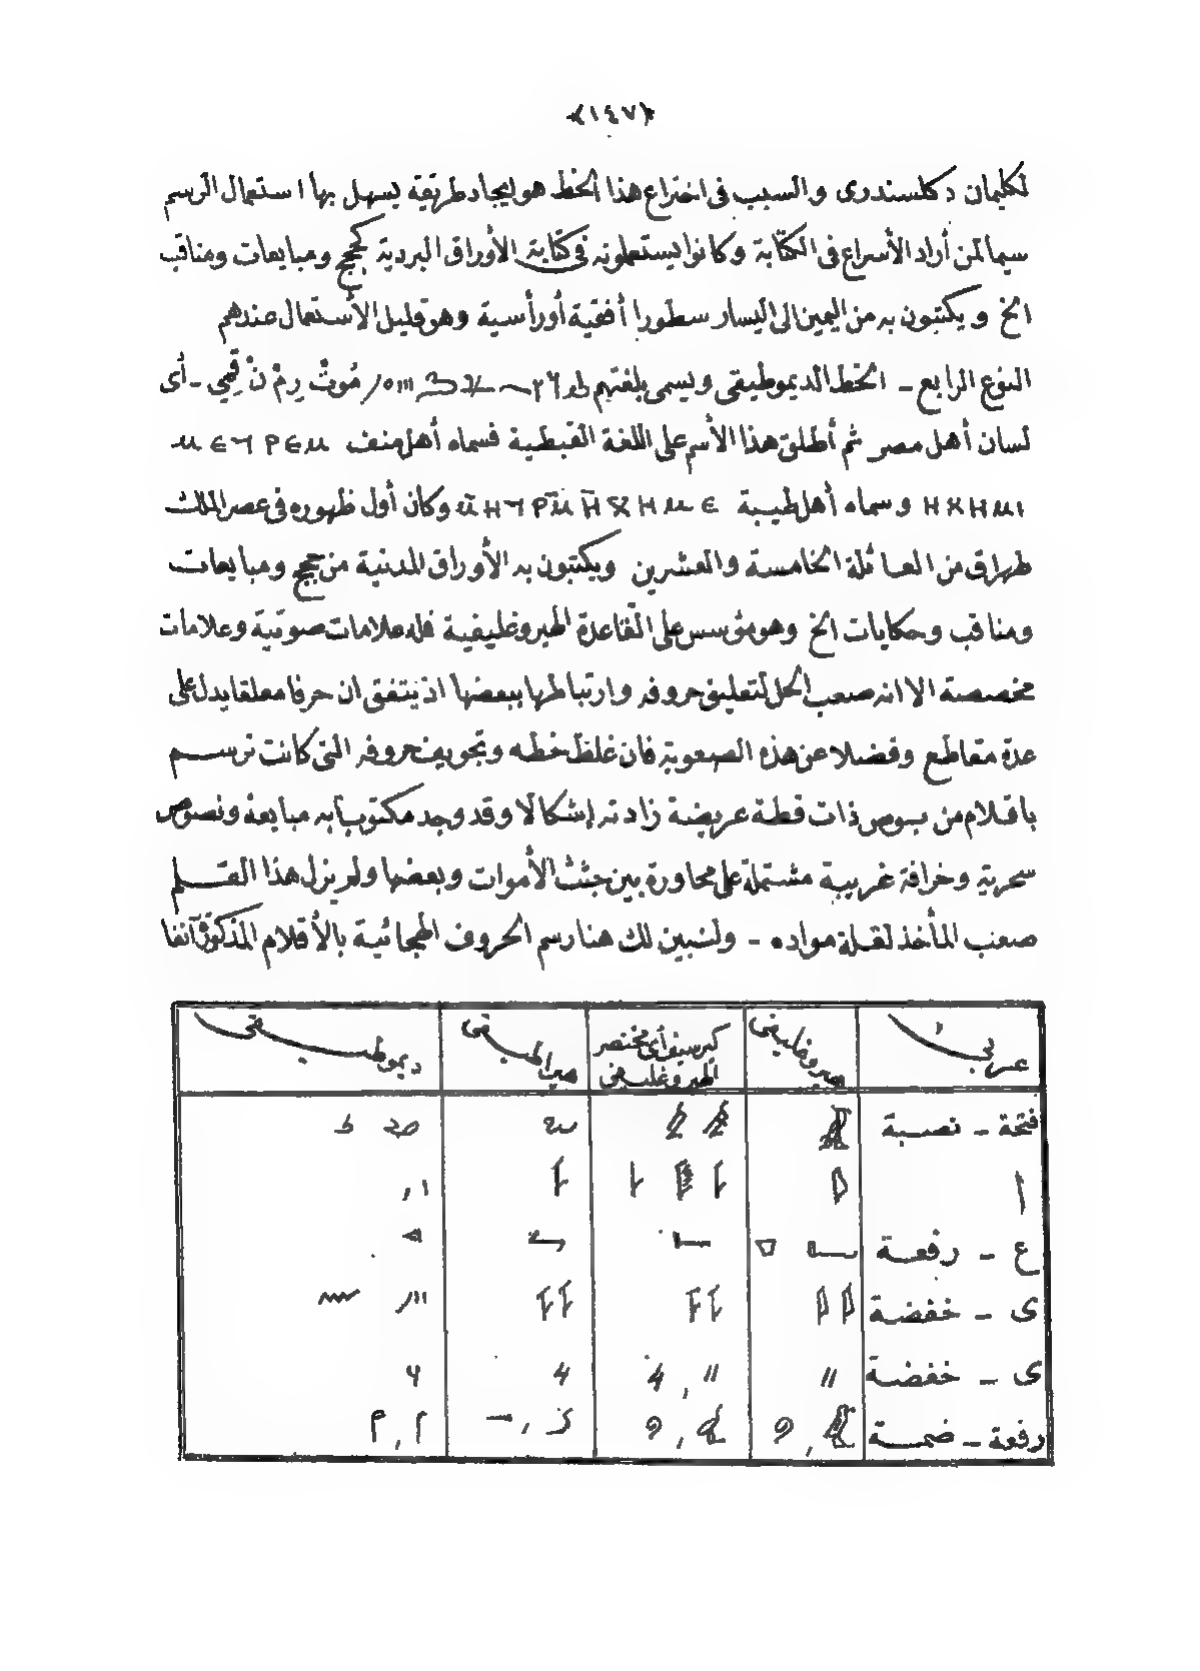 ﴿١٤٧﴾
لكليمان دكلسندرى والسبب فى اختراع هذا الخط هو ايجاد طريقة يسهل بها استعمال الرسم
سيما لمن أراد الأسراع فى الكتابة وكانوا يستعملونه فى كتابة الأوراق البردية كحجج ومبايعات ومناقب
الخ ويكتبون به من اليمين الى اليسار سطورا أفقية أو رأسية وهو قليل الأستعمال عندهم
النوع الرابع - الخط الديموطيقى ويسمى بلغتهم مُوتْ رِمْ نْ قِمِى - أى
لسان أهل مصر ثم أطلق هذا الأسم على اللغة القبطية فسماه أهل منف ⲙⲉⲧⲣⲉⲙ
ⲛⲭⲏⲙⲓ وسماه أهل طيبة ⲙⲏⲧⲣⲙⲛⲭⲏⲙⲉ وكان أول ظهوره فى عصر الملك
طهراق من العائلة الخامسة والعشرين ويكتبون به الأوراق المدنية من حجج ومبايعات
ومناقب وحكايات الخ وهو مؤسس على القاعدة الهيروغليفية فله علامات صوتية وعلامات
مخصصة الا انه صعب الحل لتعليق حروفه وارتباطها ببعضها اذ يتفق ان حرفا معلقا يدل على
عدة مقاطع وفضلا عن هذه الصعوبة فان غلظ خطه وتجويف حروفه التى كانت ترسم
باقلام من بوص ذات قطة عريضة زادته إشكالا وقد وجد مكتوبا به مبايعة ونصوص
سحرية وخرافة غريبة مشتملة على محاورة بين جثث الأموات وبعضها ولم يزل هذا القلم
صعب المأخذ لقلة مواده - ولنبين لك هنا رسم الحروف الهجائية بالأقلام المذكورة آنفا
عربى هيروغليفى كيرسيف أى مختصر الهيروغليفى هيراطيقى ديموطيقى
فتحة - نصبة
ا
ع - رفعة
ى - خفضة
ى - خفضة
رفعة - ضمة